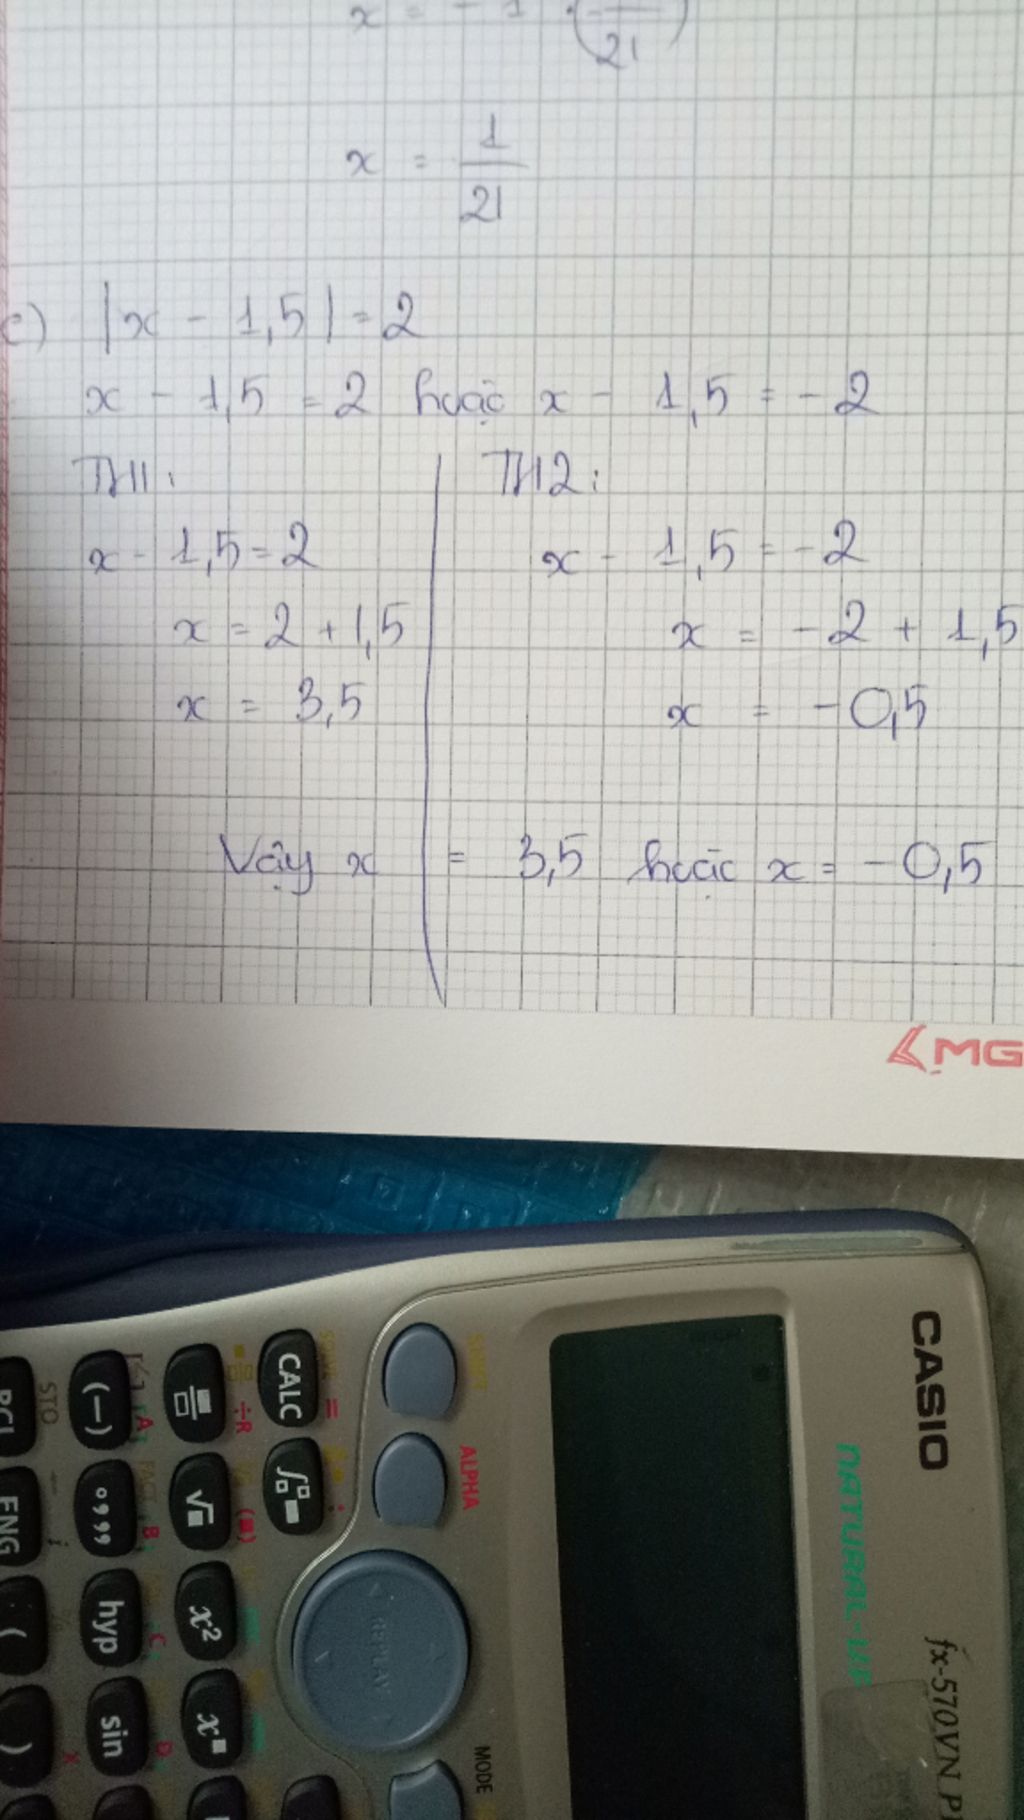 x = - 1 · (— 21)
x = 1/21
e) |x - 1,5| = 2
x - 1,5 = 2 hoặc x - 1,5 = - 2
TH1:
x - 1,5 = 2
x = 2 + 1,5
x = 3,5
TH2:
x - 1,5 = - 2
x = - 2 + 1,5
x = - 0,5
Vậy x = 3,5 hoặc x = - 0,5
MG
CASIO
NATURAL-V.P
fx-570VN P
SHIFT
ALPHA
REPLAY
MODE
SOLVE =
CALC
∫
÷R
√
x²
x
(−)
A
°,,,
FACT B
hyp
C
sin
D
STO
RCL
ENG
i
(
)
X